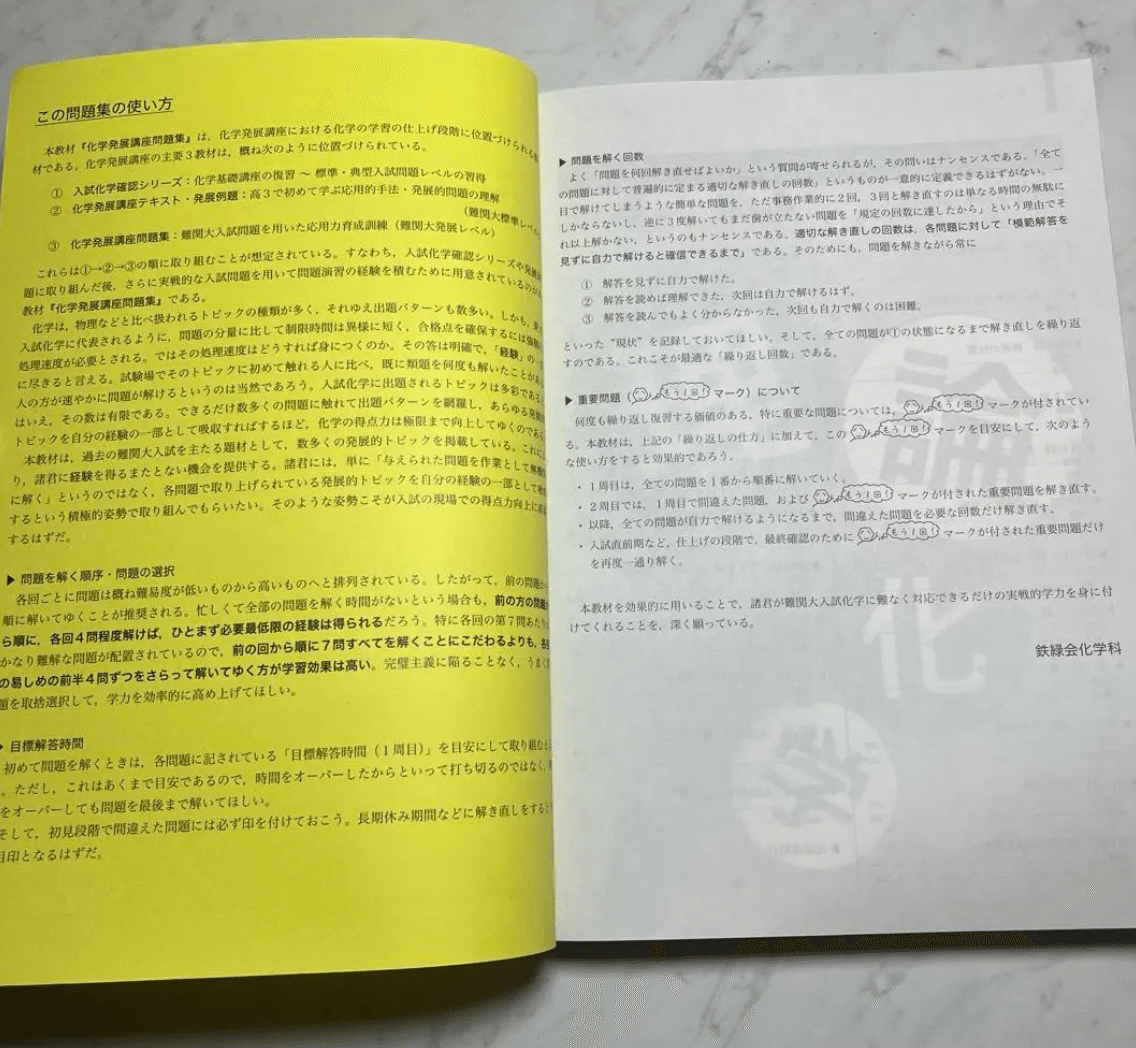 この問題集の使い方
本教材『化学発展講座問題集』は，化学発展講座における化学の学習の仕上げ段階に位置づけられる
材である。化学発展講座の主要３教材は，概ね次のように位置づけられている。
① 入試化学確認シリーズ：化学基礎講座の復習 ～ 標準・典型入試問題レベルの習得
② 化学発展講座テキスト・発展例題：高３で初めて学ぶ応用的手法・発展的問題の理解
（難関大標準レベル
③ 化学発展講座問題集：難関大入試問題を用いた応用力育成訓練（難関大発展レベル）
これらは①→②→③の順に取り組むことが想定されている。すなわち，入試化学確認シリーズや
題に取り組んだ後，さらに実戦的な入試問題を用いて問題演習の経験を積むために用意されているのが
教材『化学発展講座問題集』である。
化学は，物理などと比べ扱われるトピックの種類が多く，それゆえ出題パターンも数多い。しかも，
入試化学に代表されるように，問題の分量に比して制限時間は異様に短く，合格点を確保するには
処理速度が必要とされる。ではその処理速度はどうすれば身につくのか。その答は明確で，「経験」の一
に尽きると言える。試験場でそのトピックに初めて触れる人に比べ，既に類題を何度も解いたことがある
人の方が速やかに問題が解けるというのは当然であろう。入試化学に出題されるトピックは多彩である
はいえ，その数は有限である。できるだけ数多くの問題に触れて出題パターンを網羅し，あらゆる
トピックを自分の経験の一部として吸収すればするほど，化学の得点力は極限まで向上してゆくのである
本教材は，過去の難関大入試を主たる題材として，数多くの発展的トピックを掲載している。これに
り，諸君に経験を得るまたとない機会を提供する。諸君には，単に「与えられた問題を作業として
に解く」というのではなく，各問題で取り上げられている発展的トピックを自分の経験の一部として
するという積極的姿勢で取り組んでもらいたい。そのような姿勢こそが入試の現場での得点力向上に
するはずだ。
▶ 問題を解く順序・問題の選択
各回ごとに問題は概ね難易度が低いものから高いものへと排列されている。したがって，前の問題か
順に解いてゆくことが推奨される。忙しくて全部の問題を解く時間がないという場合も，前の方の問題
ら順に，各回４問程度解けば，ひとまず必要最低限の経験は得られるだろう。特に各回の第７問あたりは
かなり難解な問題が配置されているので，前の回から順に７問すべてを解くことにこだわるよりも，各
の易しめの前半４問ずつをさらって解いてゆく方が学習効果は高い。完璧主義に陥ることなく，うまく
題を取捨選択して，学力を効率的に高め上げてほしい。
▶ 目標解答時間
初めて問題を解くときは，各問題に記されている「目標解答時間（１周目）」を目安にして取り組むと
。ただし，これはあくまで目安であるので，時間をオーバーしたからといって打ち切るのではなく，
をオーバーしても問題を最後まで解いてほしい。
そして，初見段階で間違えた問題には必ず印を付けておこう。長期休み期間などに解き直しをすると
目印となるはずだ。
▶ 問題を解く回数
よく「問題を何回解き直せばよいか」という質問が寄せられるが，その問いはナンセンスである。「全て
の問題に対して普遍的に定まる適切な解き直しの回数」というものが一意的に定義できるはずがない。一
目で解けてしまうような簡単な問題を，ただ事務作業的に２回，３回と解き直すのは単なる時間の無駄に
しかならないし，逆に３度解いてもまだ歯が立たない問題を「規定の回数に達したから」という理由でそ
れ以上解かない，というのもナンセンスである。適切な解き直しの回数は，各問題に対して「模範解答を
見ずに自力で解けると確信できるまで」である。そのためにも，問題を解きながら常に
① 解答を見ずに自力で解けた。
② 解答を読めば理解できた，次回は自力で解けるはず。
③ 解答を読んでもよく分からなかった，次回も自力で解くのは困難。
といった“現状”を記録しておいてほしい。そして，全ての問題が①の状態になるまで解き直しを繰り返
すのである。これこそが最適な「繰り返し回数」である。
▶ 重要問題（もう１回！マーク）について
何度も繰り返し復習する価値のある，特に重要な問題については，もう１回！マークが付されてい
る。本教材は，上記の「繰り返しの仕方」に加えて，このもう１回！マークを目安にして，次のよう
な使い方をすると効果的であろう。
・１周目は，全ての問題を１番から順番に解いていく。
・２周目では，１周目で間違えた問題，およびもう１回！マークが付された重要問題を解き直す。
・以降，全ての問題が自力で解けるようになるまで，間違えた問題を必要な回数だけ解き直す。
・入試直前期など，仕上げの段階で，最終確認のためにもう１回！マークが付された重要問題だけ
を再度一通り解く。
本教材を効果的に用いることで，諸君が難関大入試化学に難なく対応できるだけの実戦的学力を身に付
けてくれることを，深く願っている。
鉄緑会化学科